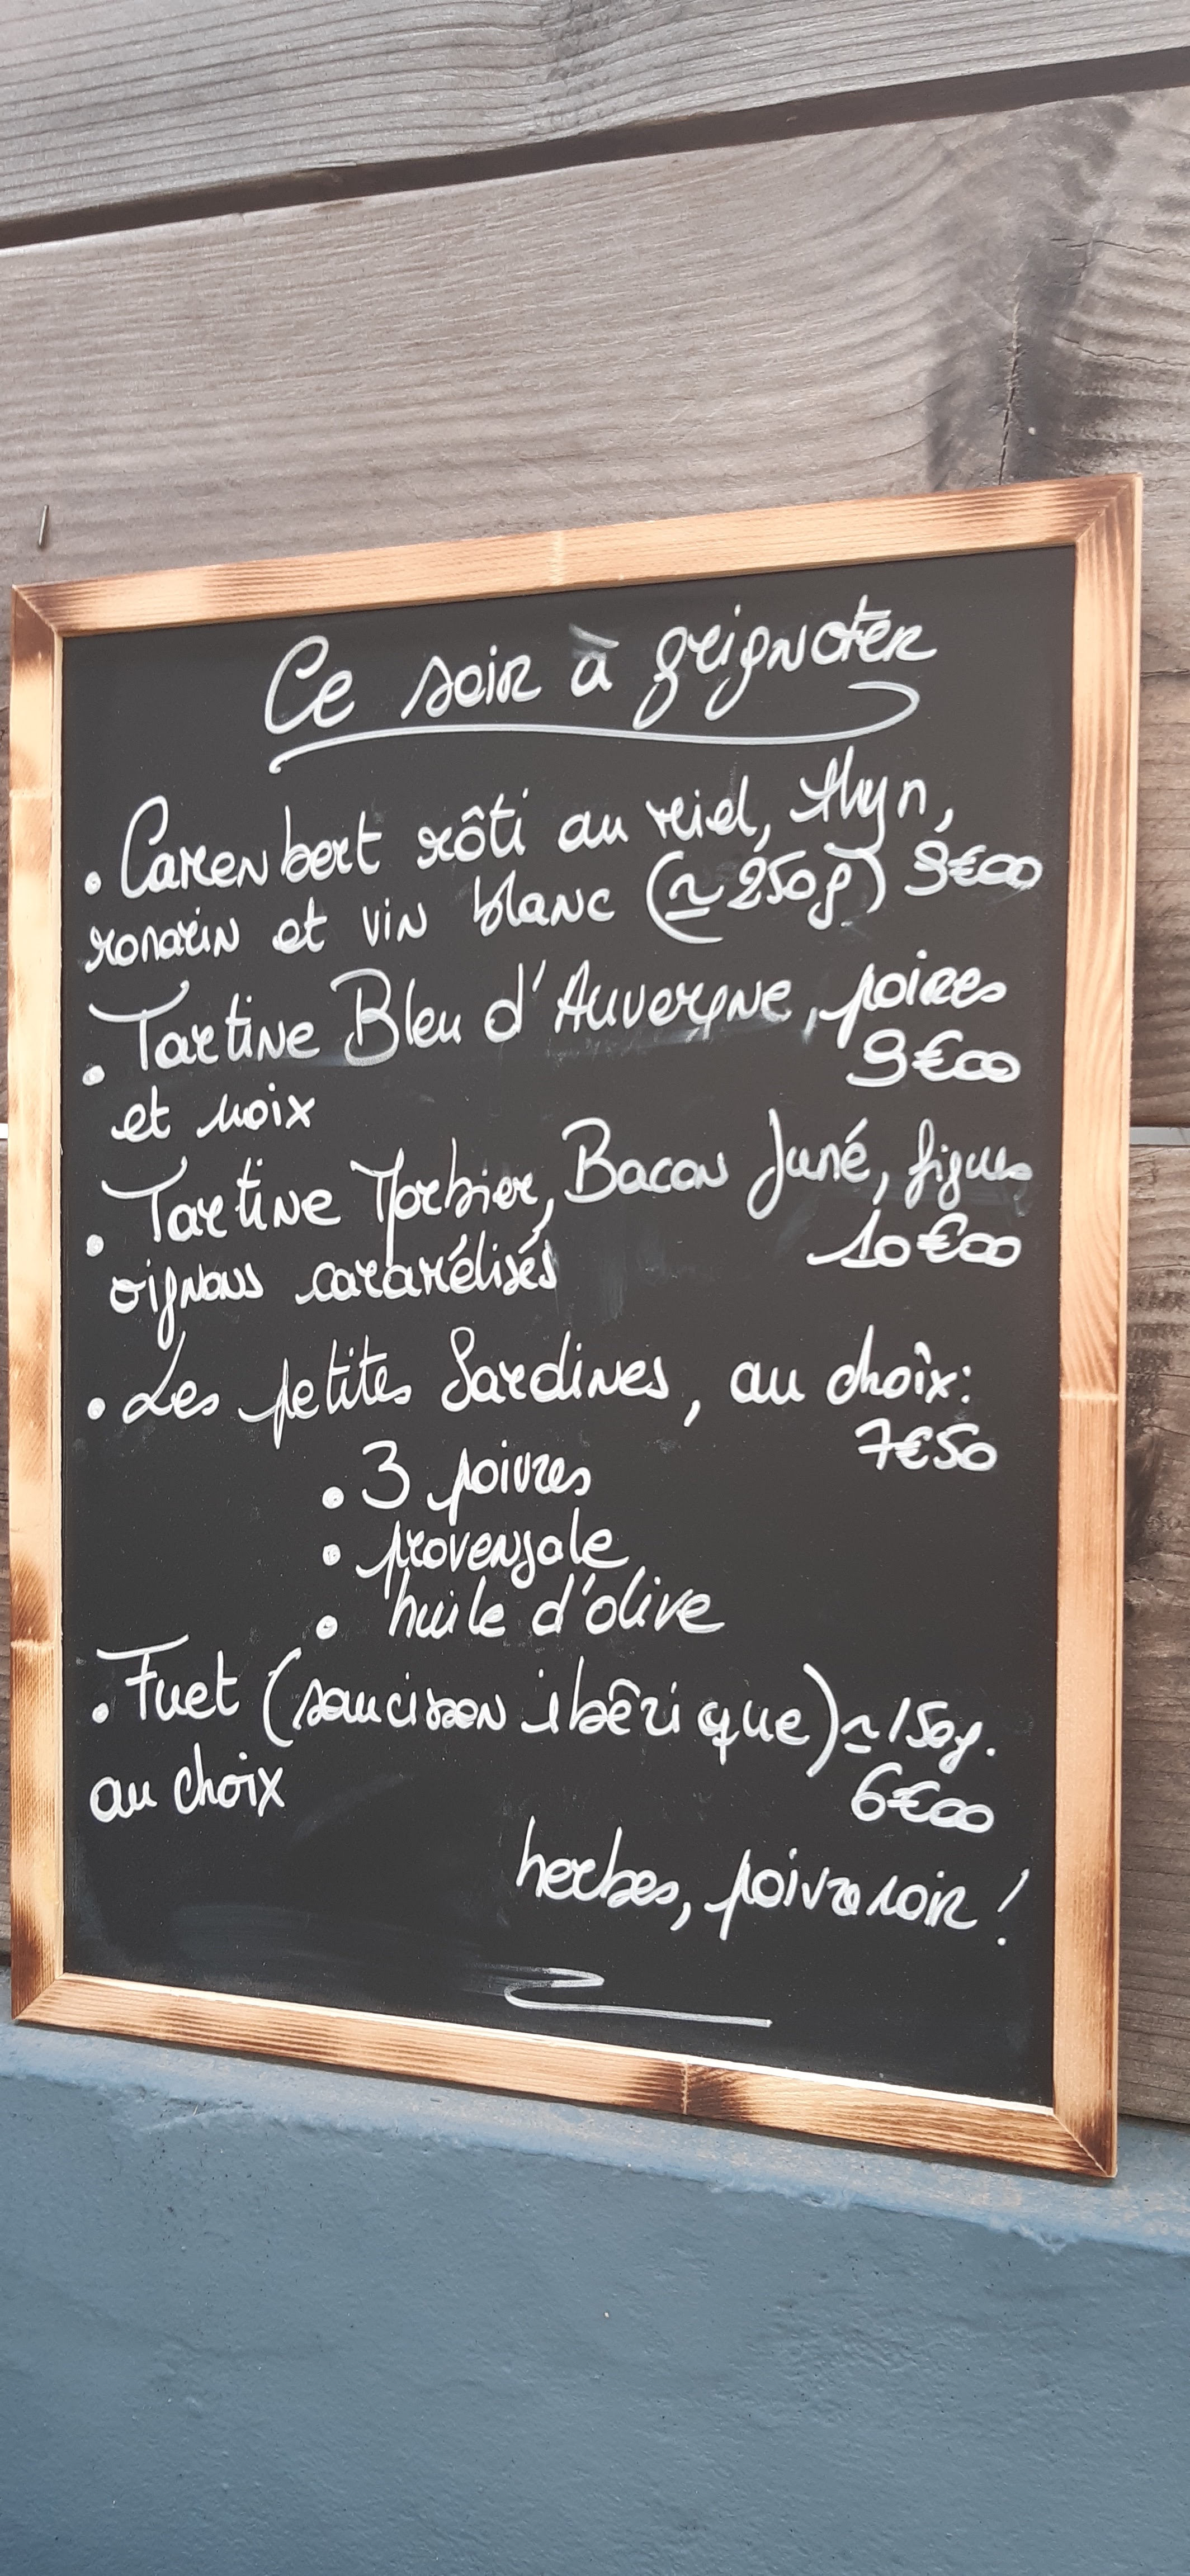 Ce soir à grignoter
• Camembert rôti au miel, thym,
romarin et vin blanc (≃250g) 9€00
• Tartine Bleu d'Auvergne, poires
9€00
et noix
• Tartine Morbier, Bacon fumé, figues
10€00
oignons caramélisés
• Les petites Sardines, au choix:
7€50
• 3 poivres
• provençale
• huile d'olive
• Fuet (saucisson ibêrique) ≃150g.
au choix
6€00
herbes, poivre noir !